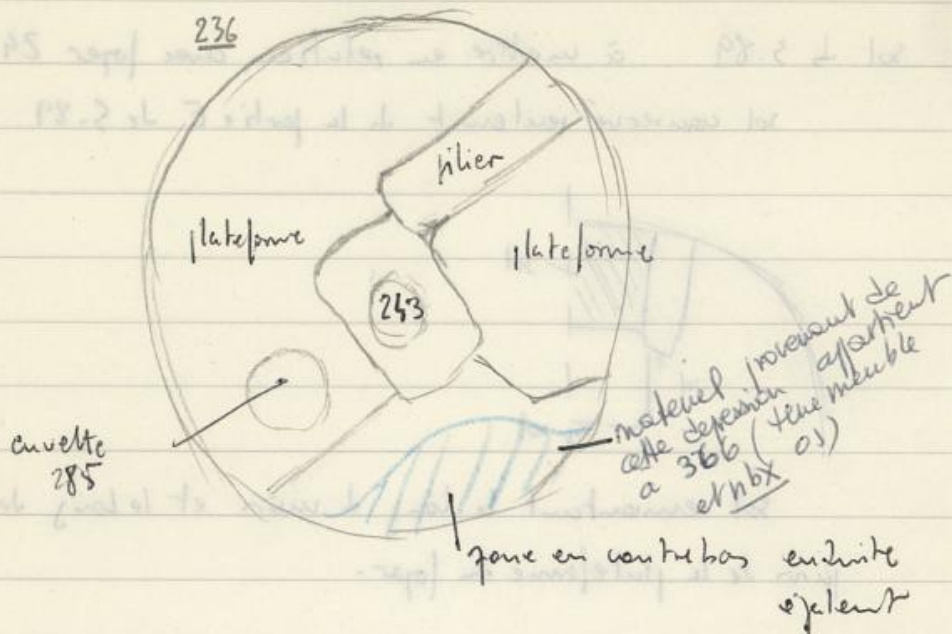 236
pilier
plateforme
plateforme
243
cuvette
285
materiel provenant de
cette depression appartient
a 366 (terre meuble
et nbx os)
zone en contrebas enduite
egalement